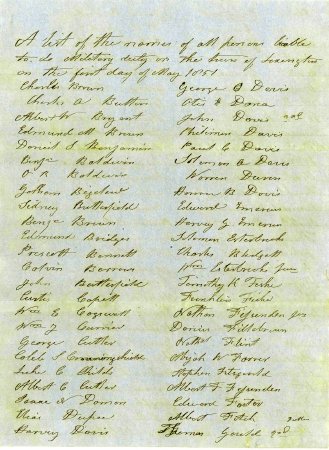 A list of the names of all persons liable
to do Military duty in the town of Lexington
on the first day of May 1851
Charles Brown
Charles A Butters
Albert W Bryant
Edmund M Brown
Daniel S Benjamin
Benja Baldwin
O R Baldwin
Gotham Bigelow
Sidney Butterfield
Benja Brown
Edmund Bridges
Prescott Bennett
Calvin Barrows
John Butterfield
Curtis Capell
Wm E Cogswell
Wm J Currier
George Cutler
Caleb S
Luke C Childs
Albert E Cutler
Isaac N Damon
Elias Dupee
Harvey Davis
George O Davis
Otis Dana
John Davis 2nd
Philemon Davis
Paul C Davis
Solomon A Davis
Warren Duren
Homer B Davis
Edward Emerson
Harvey G Emerson
Solomon Estabrooks
Charles Blodgett
Wm Estabrooks Jun
Timothy K Fiske
Franklin Fiske
Nathan Fessenden Jr
Daniel Fillebrown
Nathl Flint
Abijah W Farrar
Stephen Fitzgerald
Albert F Fessenden
Edward Foster
Albert Fitch
Thomas Gould 2nd